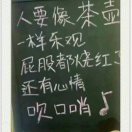 人要像茶壶
一样乐观
屁股都烧红了
还有心情
吹口哨♪